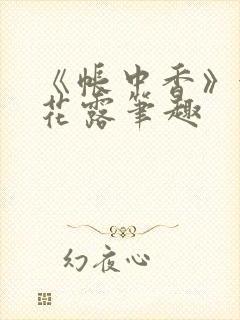 《帐中香》
花露笔趣
幻夜心